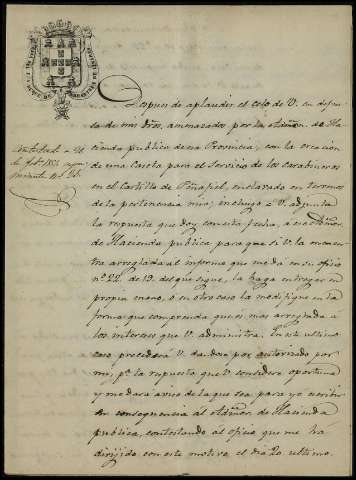 Despues de aplaudir el celo de V. en defen
sa de mis dros. amenazados por la Admon. de Ha
cienda publica de esa Provincia, con la ereccion
de una Caseta para el Servicio de los Carabineros
en el Castillo de Peñafiel, enclavado en terrenos
de la pertenencia mia, incluyo a V. adjunta
la respuesta que doy con esta fecha, á esa Admon.
de Hacienda publica para que si V. la encuen
tra arreglada al informe que me da en su oficio
nº 22. de 19. del que sigue, la haga entregar en
propia mano, ó en otro caso la modifique en la
forma que comprenda que es mas arreglada á
los intereses que V. administra. En este ultimo
caso procederá V. dandose por autorizado por
mi, pª la respuesta que V. considere oportuna
y me dará aviso de la que sea, para yo escribir
en consequencia al Admor. de Hacienda
publica, contestando al oficio que me ha
dirijido con este motivo, el dia 20 ultimo.
Contestada á 24